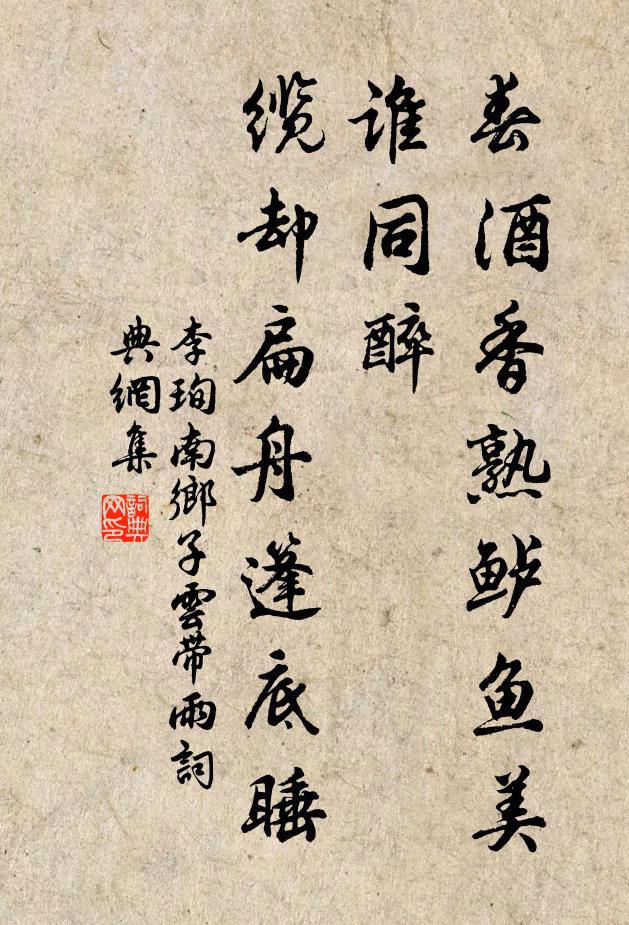 春酒香熟鲈鱼美
谁同醉
缆却扁舟篷底睡
李珣南鄉子雲带雨詞
典網集
詞典网印